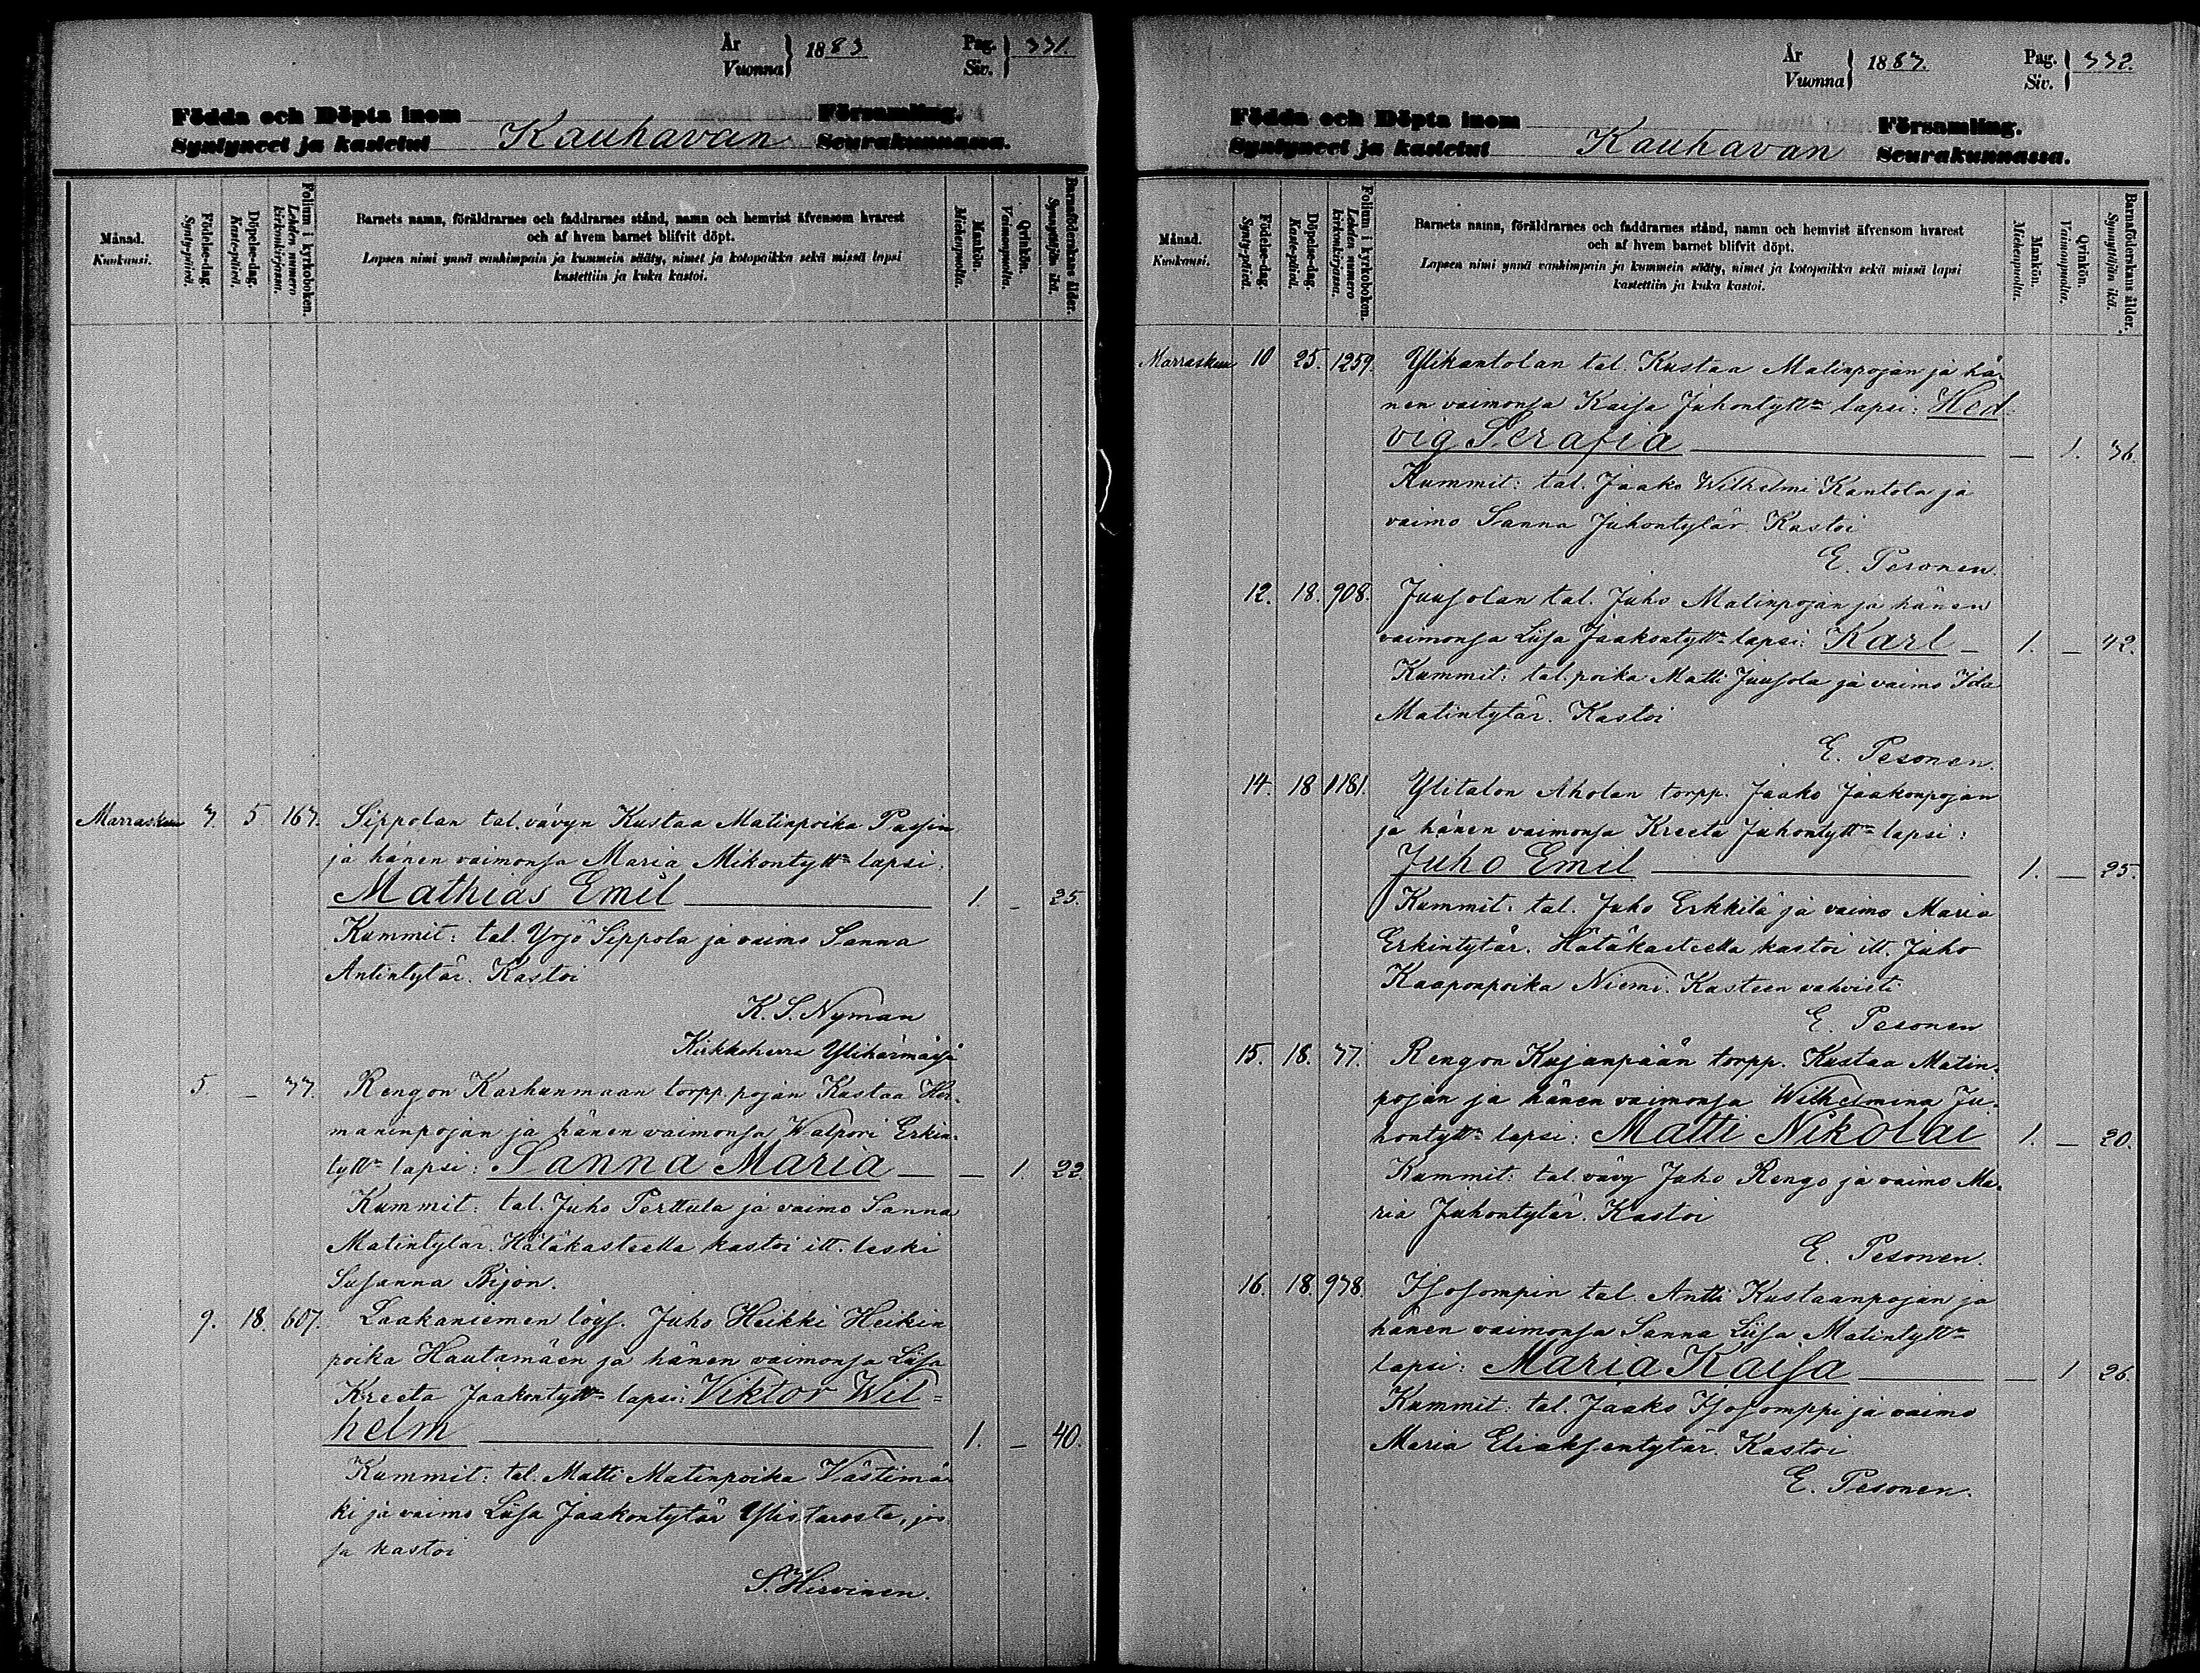 År
Vuonna } 1883
Pag.
Siv. } 331.
Födda och Döpta inom
Syntyneet ja kastetut
Kauhavan
Församling.
Seurakunnassa.
Månad.
Kuukausi.
Födelse-dag.
Synty-päivä.
Döpelse-dag.
Kaste-päivä.
Folium i kyrkoboken.
Lehden numero kirkonkirjassa.
Barnets namn, föräldrarnes och faddrarnes stånd, namn och hemvist äfvensom hvarest
och af hvem barnet blifvit döpt.
Lapsen nimi ynnä vanhimpain ja kummein sääty, nimet ja kotopaikka sekä missä lapsi
kastettiin ja kuka kastoi.
Mankön.
Miehenpuolia.
Qvinkön.
Vaimonpuolia.
Barnaföderskans ålder.
Synnyttäjän ikä.
Marraskuu 3. 5 167. Sippolan tal. vävyn Kustaa Matinpoika Passin
ja hänen vaimonsa Maria Mikontytt= lapsi:
Mathias Emil 1. – 25.
Kummit: tal. Yrjö Sippola ja vaimo Sanna
Antintytär. Kastoi
K. S. Nyman
Kirkkoherra Ylihärmässä
5. – 37. Rengon Karhunmaan torpp. pojan Kustaa Her-
maninpojan ja hänen vaimonsa Walpori Erkin-
tytt= lapsi: Sanna Maria – 1. 22.
Kummit: tal. Juho Perttula ja vaimo Sanna
Matintytär. Hätäkasteella kastoi itt. leski
Susanna Bijon.
9. 18. 607. Laakaniemen löys. Juho Heikki Heikin
poika Hautamäen ja hänen vaimonsa Liisa
Kreeta Jaakontytt= lapsi: Viktor Wil=
helm 1. – 40.
Kummit: tal. Matti Matinpoika Västimä-
ki ja vaimo Liisa Jaakontytär Ylistarosta, jos-
sa kastoi
S. Hirvinen.
År
Vuonna } 1883.
Pag.
Siv. } 332.
Födda och Döpta inom
Syntyneet ja kastetut
Kauhavan
Församling.
Seurakunnassa.
Månad.
Kuukausi.
Födelse-dag.
Synty-päivä.
Döpelse-dag.
Kaste-päivä.
Folium i kyrkoboken.
Lehden numero kirkonkirjassa.
Barnets namn, föräldrarnes och faddrarnes stånd, namn och hemvist äfvensom hvarest
och af hvem barnet blifvit döpt.
Lapsen nimi ynnä vanhimpain ja kummein sääty, nimet ja kotopaikka sekä missä lapsi
kastettiin ja kuka kastoi.
Mankön.
Miehenpuolia.
Qvinkön.
Vaimonpuolia.
Barnaföderskans ålder.
Synnyttäjän ikä.
Marraskuu 10 25. 1259. Ylikantolan tal. Kustaa Matinpojan ja hä-
nen vaimonsa Kaisa Juhontytt= lapsi: Hed-
vig Serafia – 1. 36.
Kummit: tal. Jaako Wilhelmi Kantola ja
vaimo Sanna Juhontytär. Kastoi
E. Pesonen.
12. 18. 908. Juusolan tal. Juho Matinpojan ja hänen
vaimonsa Liisa Jaakontytt= lapsi: Karl – 1. – 42.
Kummit: tal. poika Matti Juusola ja vaimo Ida
Matintytär. Kastoi
E. Pesonen.
14. 18 1181. Ylitalon Aholan torpp. Jaako Jaakonpojan
ja hänen vaimonsa Kreeta Juhontytt= lapsi:
Juho Emil 1. – 25.
Kummit: tal. Juho Erkkilä ja vaimo Maria
Erkintytär. Hätäkasteella kastoi itt. Juho
Kaaponpoika Niemi. Kasteen vahvisti
E. Pesonen
15. 18. 37. Rengon Kujanpään torpp. Kustaa Matin-
pojan ja hänen vaimonsa Wilhelmina Ju-
hontytt= lapsi: Matti Nikolai 1. – 20.
Kummit: tal. vävy Juho Rengo ja vaimo Ma-
ria Juhontytär. Kastoi
E. Pesonen.
16. 18. 938. Isosompin tal. Antti Kustaanpojan ja
hänen vaimonsa Sanna Liisa Matintytt=
lapsi: Maria Kaisa – 1 26.
Kummit: tal. Jaako Isosomppi ja vaimo
Maria Eliaksentytär. Kastoi
E. Pesonen.